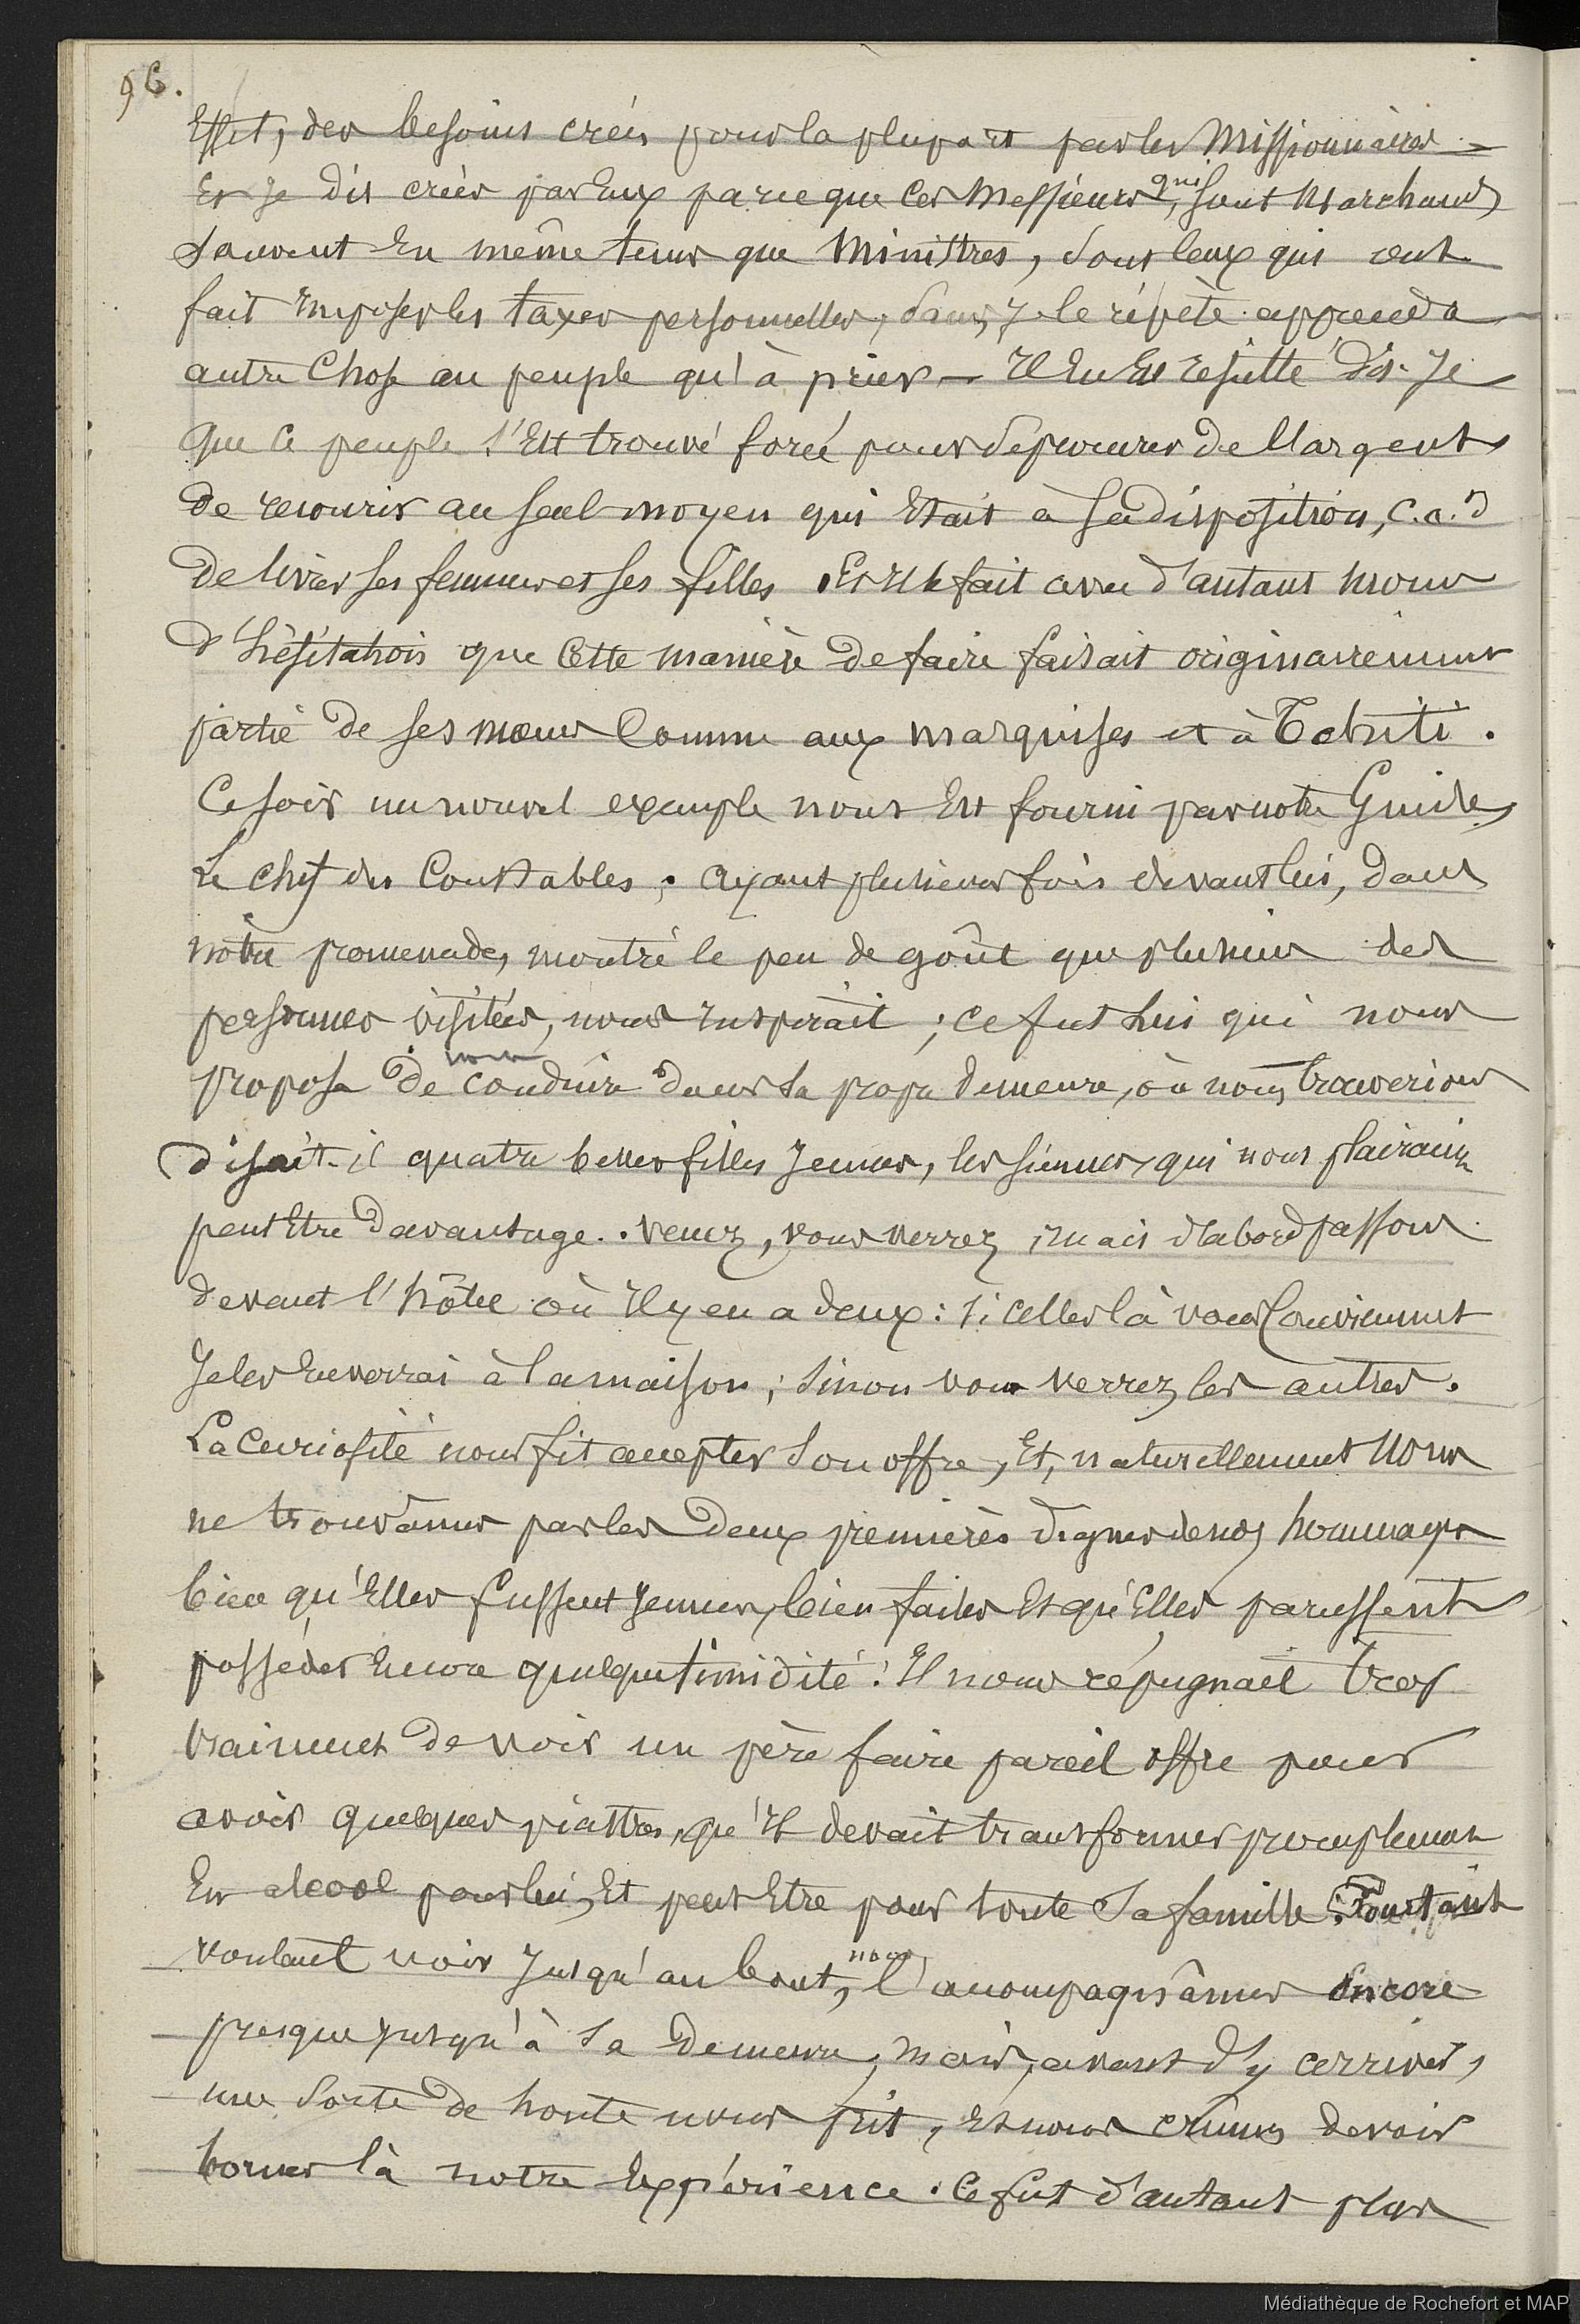 96.
Effet, des besoins créés pour la plupart par les Missionnaires –
Et je dis créés par Eux parceque Ces Messieurs, qui sont Marchands
souvent En même tems que Ministres, sont ceux qui ont
fait imposer les taxes personnelles, sans, je le répète apprendre
autre Chose au peuple qu'à prier – Il En Est résulté dis-Je
que ce peuple s'Est trouvé forcé pour se procurer de l'argent
de recourir au seul moyen qui Etait à sa disposition, c.a.d
de livrer ses femmes et ses filles. Et Il le fait avec d'autant moins
d'hésitation que Cette manière de faire faisait originairement
partie de ses mœurs Comme aux Marquises et à Tahiti.
Ce soir un nouvel exemple nous Est fourni par notre Guide,
Le Chef des Constables. Ayant plusieurs fois devant lui, dans
notre promenade, montré le peu de goût que plusieurs des
personnes visitées, nous inspirait ; ce fut Lui qui nous
proposa de nous conduire dans sa propre demeure, où nous trouverions
disait-il quatre belles filles Jeunes, les siennes, qui nous plairaient
peut Etre davantage. Venez, vous verrez ; mais d'abord passons
devant l'hôtel où Il y en a deux : si celles là vous Conviennent
Je les Enverrai à la maison ; sinon vous verrez les autres.
La Curiosité nous fit accepter son offre, Et, naturellement Nous
ne trouvâmes pas les deux premières dignes de nos hommages
bien qu'Elles fussent Jeunes, bien faites Et qu'Elles parussent
posséder Encore quelque timidité. Il nous répugnait trop
vraiment de voir un père faire pareil offre pour
avoir quelques piastres, qu'Il devait transformer promptement
En alcool pour lui, Et peut Etre pour toute sa famille. Pourtant
voulant voir Jusqu'au bout, nous l'accompagnâmes Encore
presque jusqu'à sa demeure, mais, avant d'y arriver,
une sorte de honte nous prit, Et nous crûmes devoir
borner là notre Expérience. Ce fut d'autant plus
Médiathèque de Rochefort et MAP